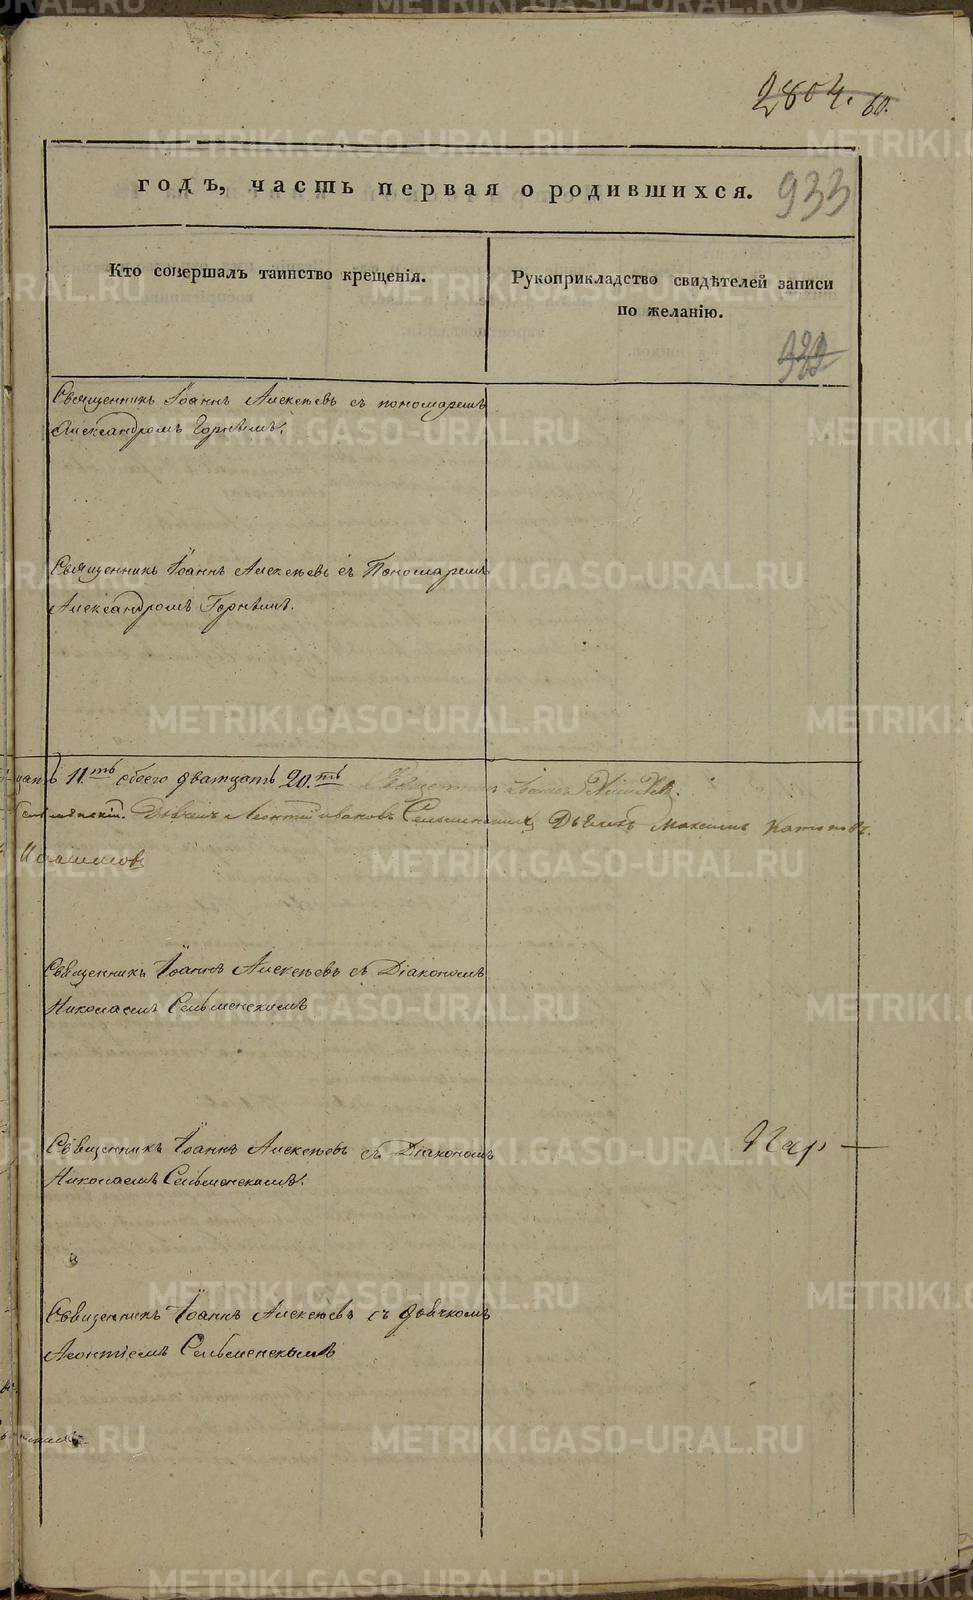 2804. 60.
годъ, часть первая о родившихся. 933
Кто совершалъ таинство крещенія.
Рукоприкладство свидѣтелей записи
по желанію.
Священникъ Іоаннъ Алексѣевъ съ пономаремъ
Александромъ Горнымъ.
Священникъ Іоаннъ Алексѣевъ съ Пономаремъ
Александромъ Горнымъ.
11.ть обоего дватцать 20.ть Священникъ Іоаннъ
Леонтий Ивановъ Сельменский Дьячекъ Максимъ
Священникъ Іоаннъ Алексѣевъ съ Діакономъ
Николаемъ Сельменскимъ
Священникъ Іоаннъ Алексѣевъ съ Діакономъ
Николаемъ Сельменскимъ.
Священникъ Іоаннъ Алексѣевъ съ дьячкомъ
Леонтіемъ Сельменскимъ
METRIKI.GASO-URAL.RU